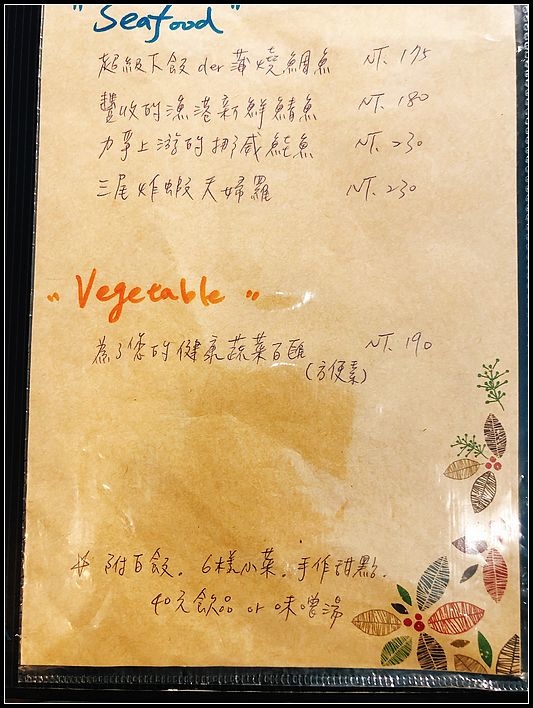 "Seafood"
超級下飯der蒲燒鯛魚 NT. 175
豐收的漁港新鮮鯖魚 NT. 180
力爭上游的挪威鮭魚 NT. 230
三尾炸蝦天婦羅 NT. 230
"Vegetable"
為了您的健康蔬菜百匯 NT. 190
(方便素)
附白飯. 6樣小菜. 手作甜點.
40元飲品 or 味噌湯